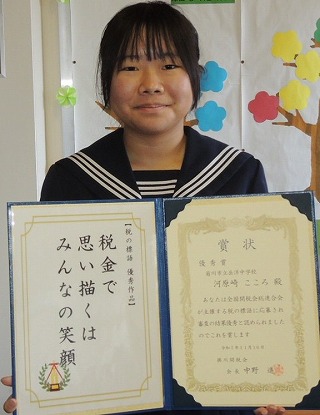 【税の標語 優秀作品】
税金で
思い描くは
みんなの笑顔
賞状
優秀賞
菊川市立岳洋中学校
河原崎 こころ 殿
あなたは全国間税会総連合会
が主催する税の標語に応募され
審査の結果優秀と認められました
のでこれを賞します
会長 中野